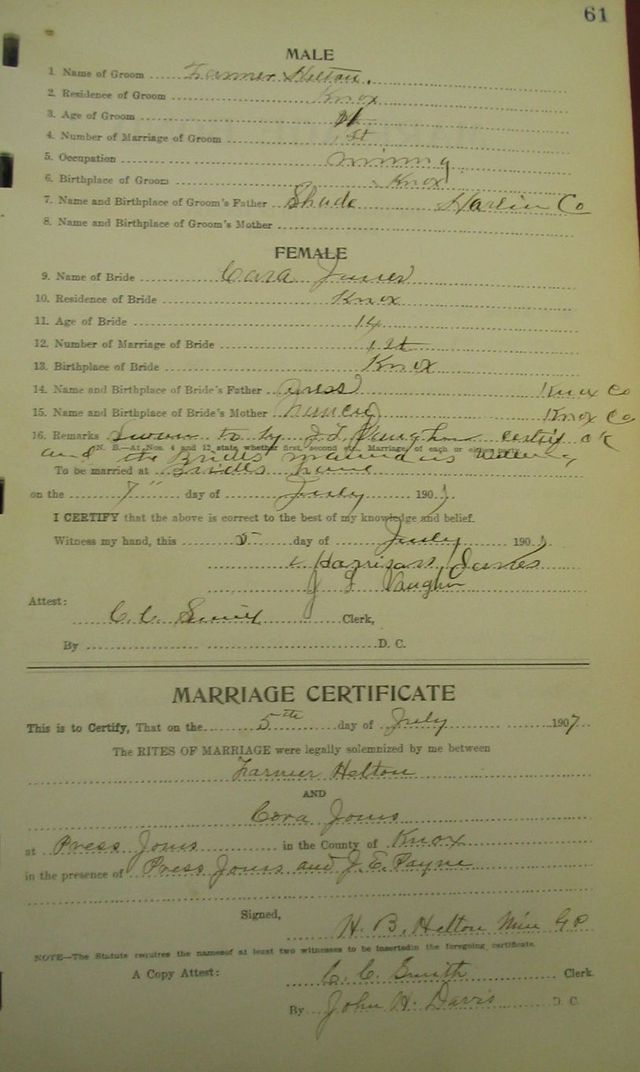 61
MALE
1. Name of Groom Farmer Helton.
2. Residence of Groom Knox
3. Age of Groom 21
4. Number of Marriage of Groom 1st
5. Occupation mining
6. Birthplace of Groom Knox
7. Name and Birthplace of Groom's Father Shade Harlin Co
8. Name and Birthplace of Groom's Mother
FEMALE
9. Name of Bride Cora Jones
10. Residence of Bride Knox
11. Age of Bride 14
12. Number of Marriage of Bride 1st
13. Birthplace of Bride Knox
14. Name and Birthplace of Bride's Father Press Knox Co
15. Name and Birthplace of Bride's Mother Nancy Knox Co
16. Remarks Sworn to by J. L. Vaughn certify ok
(N. B.—At Nos. 4 and 12 state whether first, second, etc., Marriage of each or either party.)
and the Brides is willing
To be married at Brides home
on the 7" day of July 1907
I CERTIFY that the above is correct to the best of my knowledge and belief.
Witness my hand, this 5 day of July 1907
Harrison Jones
J L Vaughn
Attest:
C. C. Smith Clerk,
By D. C.
MARRIAGE CERTIFICATE
This is to Certify, That on the 5th day of July 1907
The RITES OF MARRIAGE were legally solemnized by me between
Farmer Helton
AND
Cora Jones
at Press Jones in the County of Knox
in the presence of Press Jones and J. E. Payne
Signed,
H. B. Helton Min
NOTE—The Statute requires the names of at least two witnesses to be inserted in the foregoing certificate.
A Copy Attest: C. C. Smith Clerk
By John H. Davis D. C.